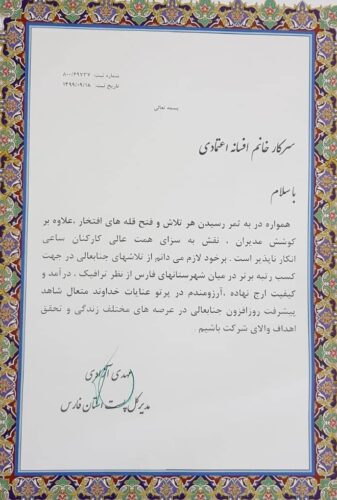 شماره ثبت: ۸۰۰/۲۹۷۳۷
تاریخ ثبت: ۱۳۹۹/۰۹/۱۸
بسمه تعالی
سرکار خانم افسانه اعتمادی
با سلام
همواره در به ثمر رسیدن هر تلاش و فتح قله های افتخار ،علاوه بر
کوشش مدیران ، نقش به سزای همت عالی کارکنان ساعی
انکار ناپذیر است . برخود لازم می دانم از تلاشهای جنابعالی در جهت
کسب رتبه برتر در میان شهرستانهای فارس از نظر ترافیک ، درآمد و
کیفیت ارج نهاده ،آرزومندم در پرتو عنایات خداوند متعال شاهد
پیشرفت روزافزون جنابعالی در عرصه های مختلف زندگی و تحقق
اهداف والای شرکت باشیم
مهدی
مدیرکل پست استان فارس